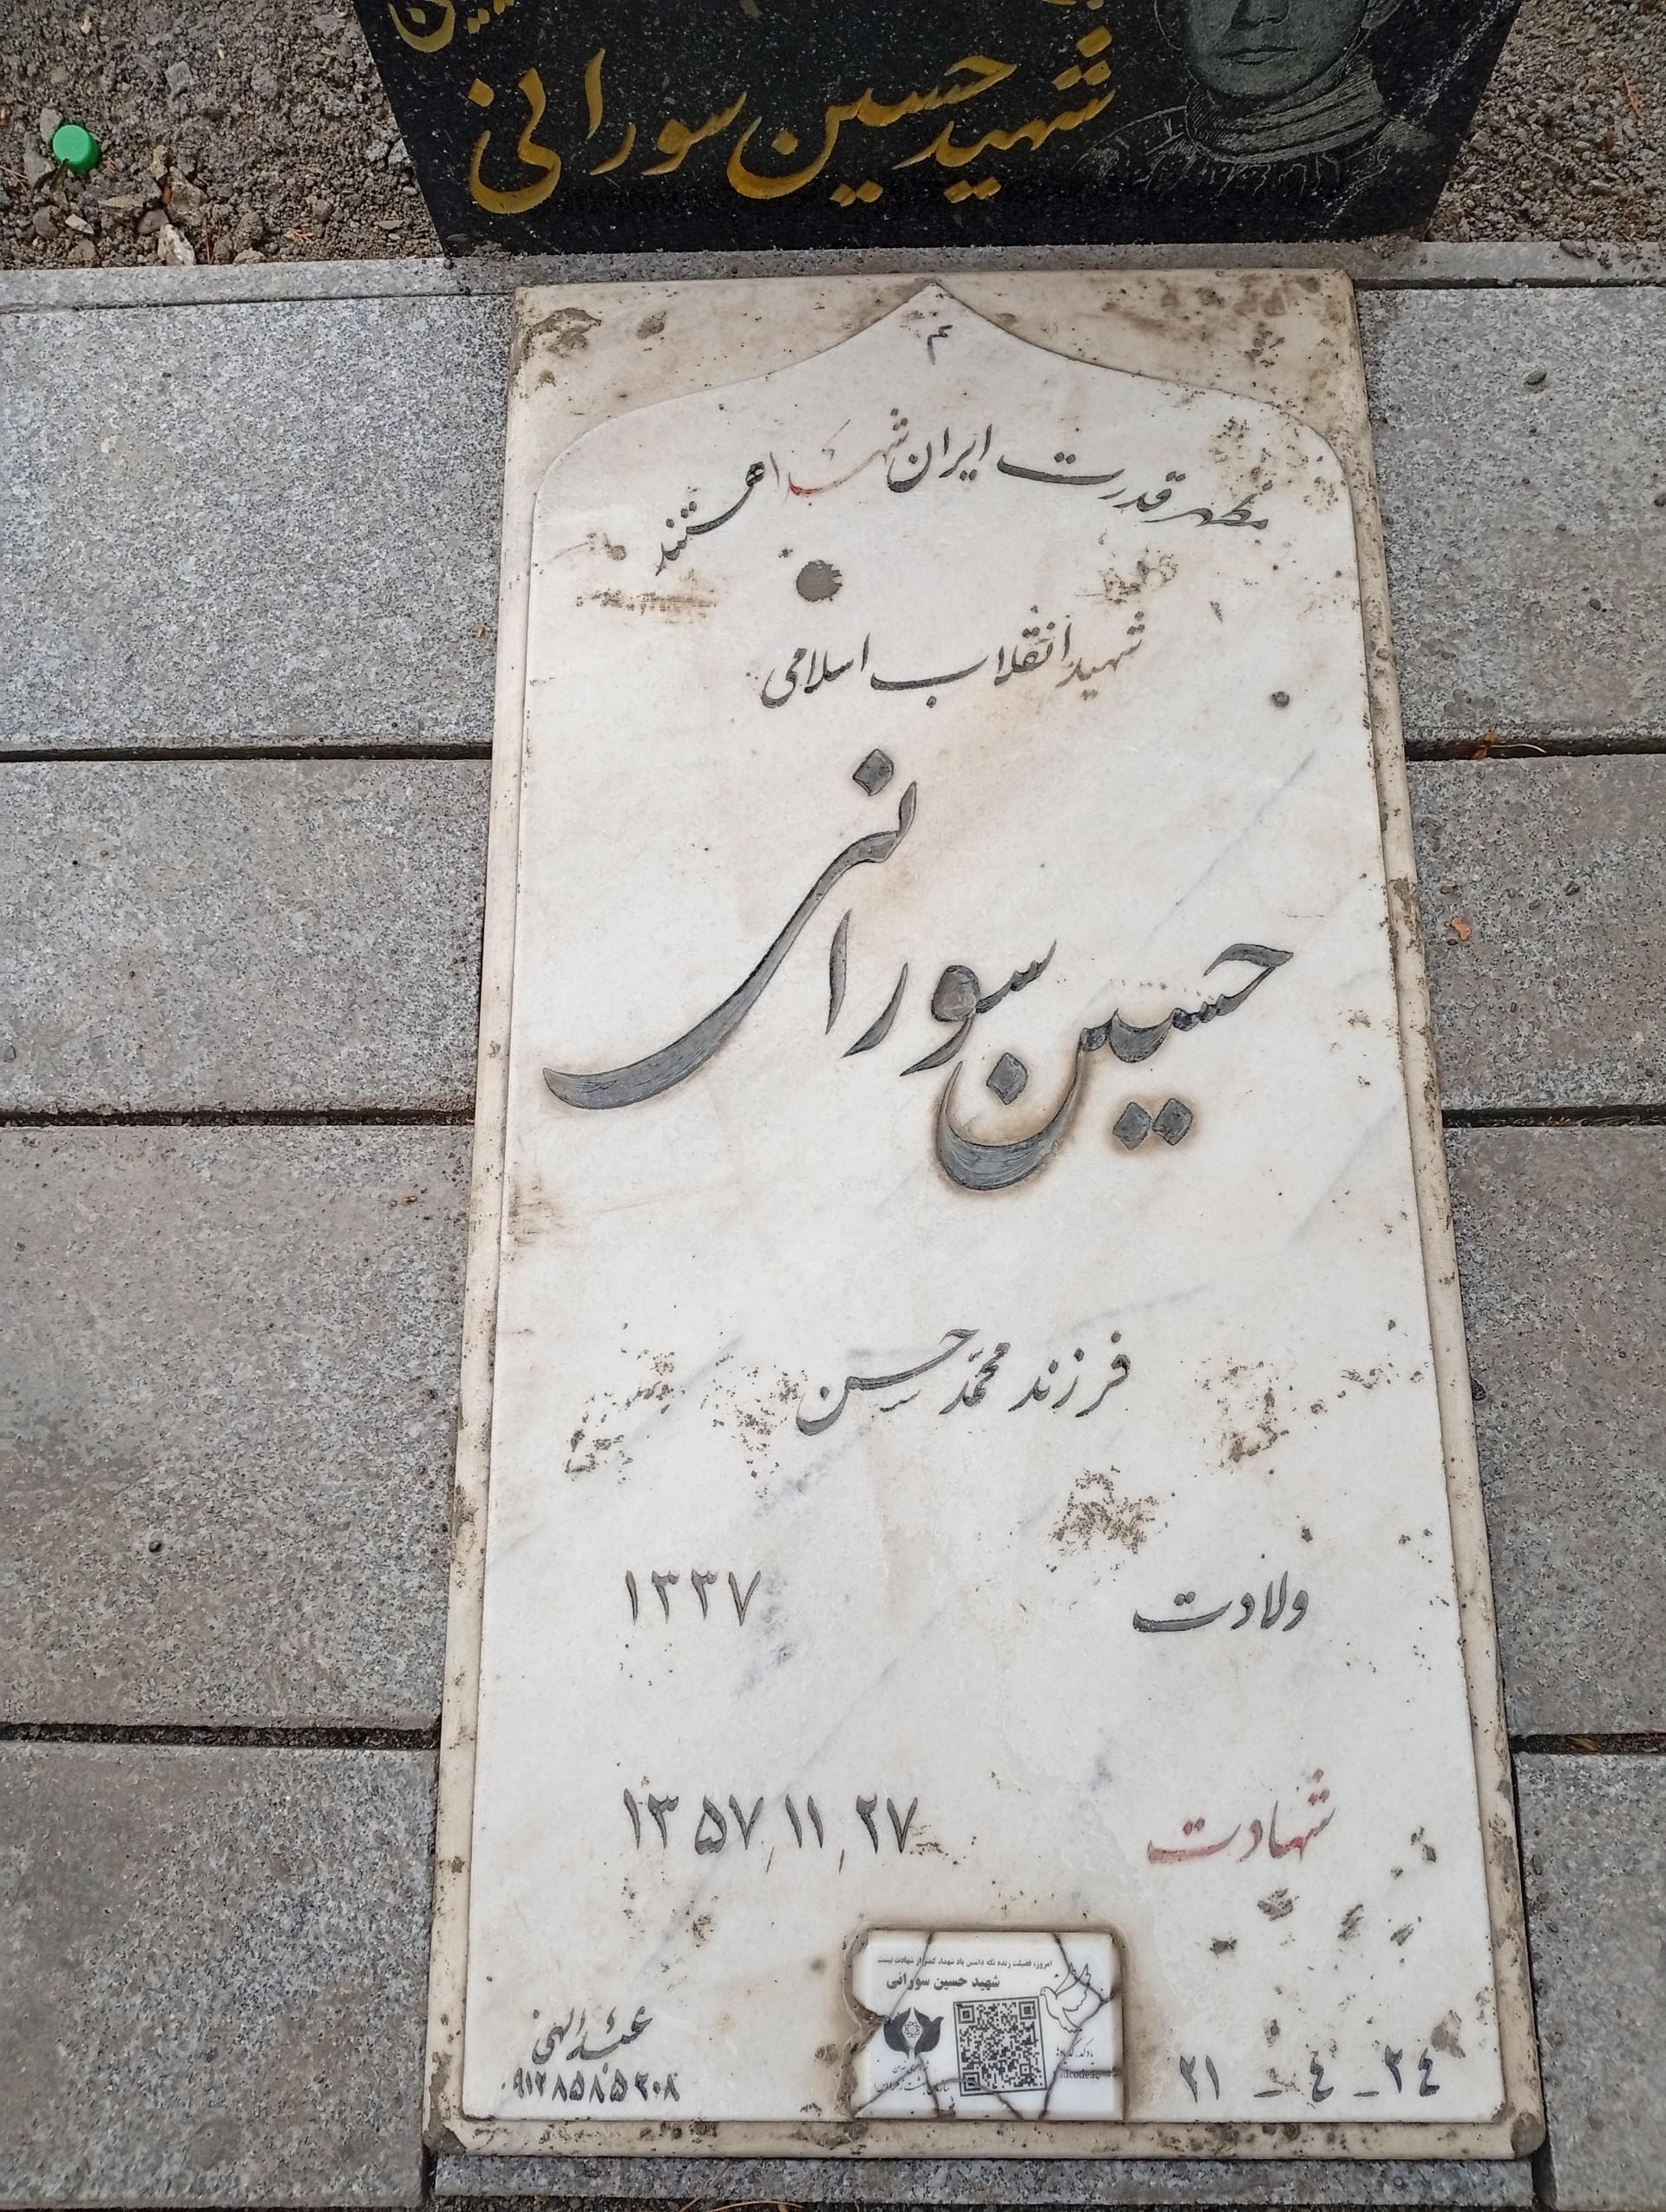 شهید حسین سورانی
مظهر قدرت ایران شهدا هستند
شهید انقلاب اسلامی
حسین سورانی
فرزند محمد حسن
ولادت ۱۳۳۷
شهادت ۲۷ / ۱۱ / ۱۳۵۷
امروزه فضیلت زنده نگه داشتن یاد شهدا، کمتر از شهادت نیست
شهید حسین سورانی
عبدالهی
۰۹۱۲۸۵۸۵۲۰۸
۲٤ - ٤ - ۲۱